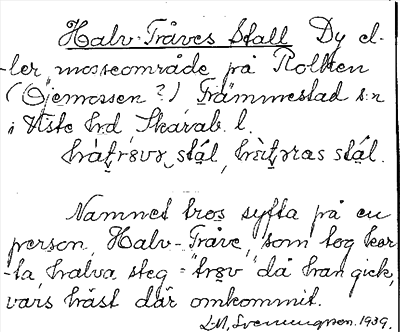 Halv-Tråves Stall Dy el-
-ler mosseområde på Rolken
(Gjemossen?) Främmestad s:n
i Viste hrd, Skarab. l.
stål, stål.
Namnet tros syfta på en
person, Halv-Tråve, som tog kor-
-ta, halva steg = "trøv" då han gick,
vars häst där omkommit.
L.M. Svenungsson. 1939.